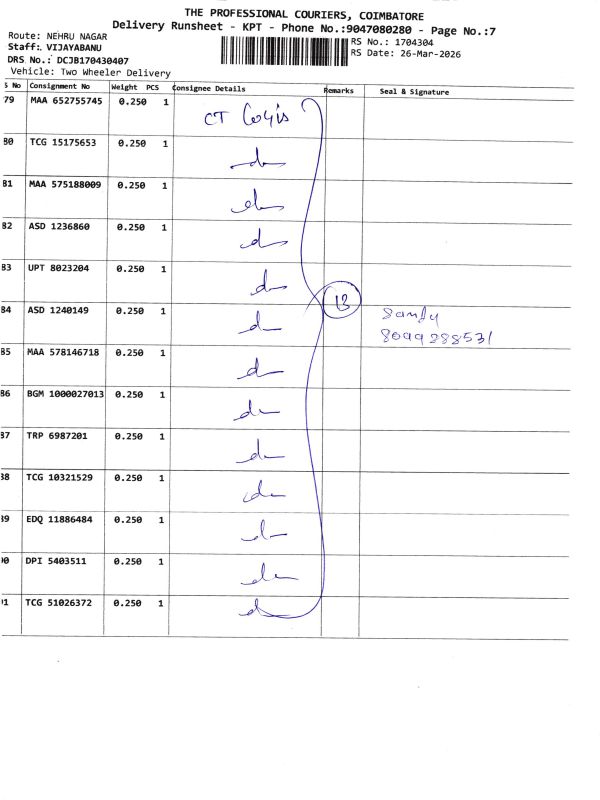 THE PROFESSIONAL COURIERS, COIMBATORE
Delivery Runsheet - KPT - Phone No.:9047080280 - Page No.:7
Route: NEHRU NAGAR
Staff: VIJAYABANU
DRS No.: DCJB170430407
Vehicle: Two Wheeler Delivery
RS No.: 1704304
RS Date: 26-Mar-2026
S No Consignment No Weight PCS Consignee Details Remarks Seal & Signature
79 MAA 652755745 0.250 1 CT
80 TCG 15175653 0.250 1
81 MAA 575188009 0.250 1
82 ASD 1236860 0.250 1
83 UPT 8023204 0.250 1
13
84 ASD 1240149 0.250 1
8099288531
85 MAA 578146718 0.250 1
86 BGM 1000027013 0.250 1
87 TRP 6987201 0.250 1
88 TCG 10321529 0.250 1
89 EDQ 11886484 0.250 1
90 DPI 5403511 0.250 1
91 TCG 51026372 0.250 1